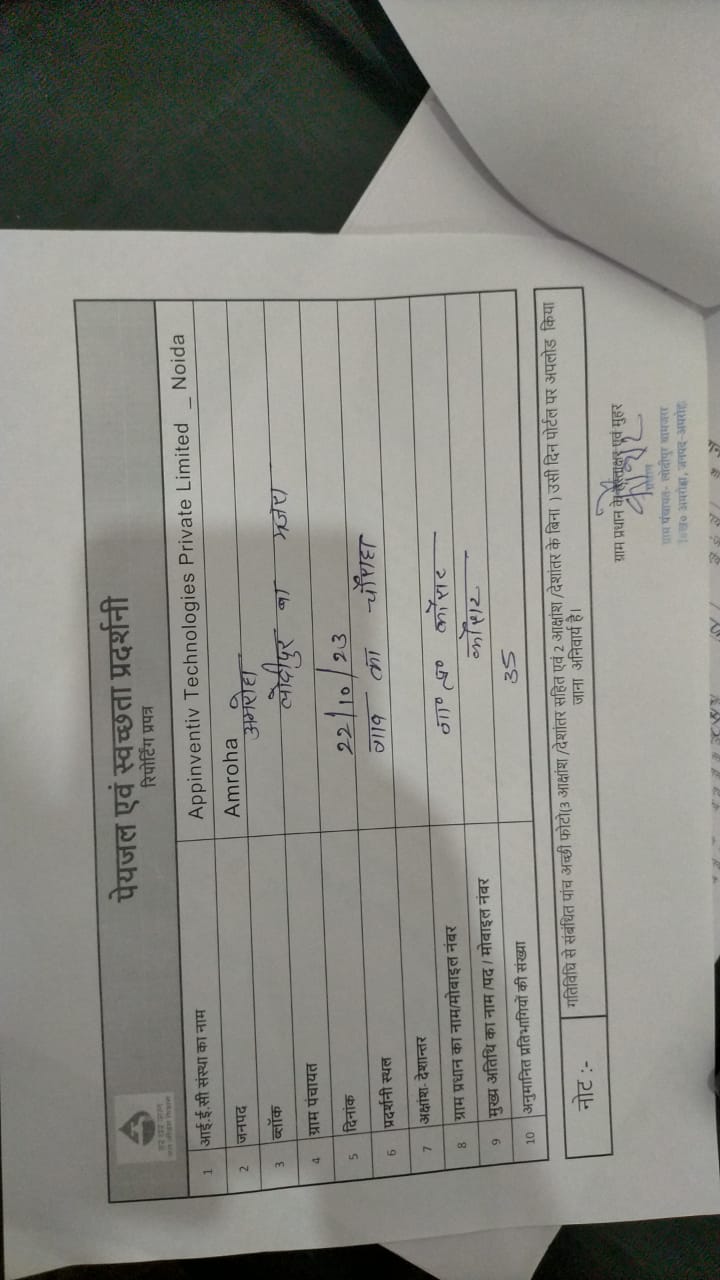 हर घर जल
जल जीवन मिशन
पेयजल एवं स्वच्छता प्रदर्शनी
रिपोर्टिंग प्रपत्र
1 आई.ई.सी संस्था का नाम Appinventiv Technologies Private Limited _ Noida
2 जनपद Amroha
3 ब्लॉक अमरोहा
4 ग्राम पंचायत लोदीपुर का मजरा
5 दिनांक 22/10/23
6 प्रदर्शनी स्थल गाव का चौराहा
7 अक्षांश- देशान्तर
8 ग्राम प्रधान का नाम/मोबाईल नंबर कौसर
9 मुख्य अतिथि का नाम /पद / मोबाईल नंबर कौशर
10 अनुमानित प्रतिभागियों की संख्या 35
नोट :- गतिविधि से संबंधित पांच अच्छी फोटो(3 आक्षांश /देशांतर सहित एवं 2 आक्षांश /देशांतर के बिना ) उसी दिन पोर्टल पर अपलोड किया
जाना अनिवार्य है।
ग्राम प्रधान के हस्ताक्षर एवं मुहर
ग्राम पंचायत- लोदीपुर
अमरोहा, जनपद-अमरोहा